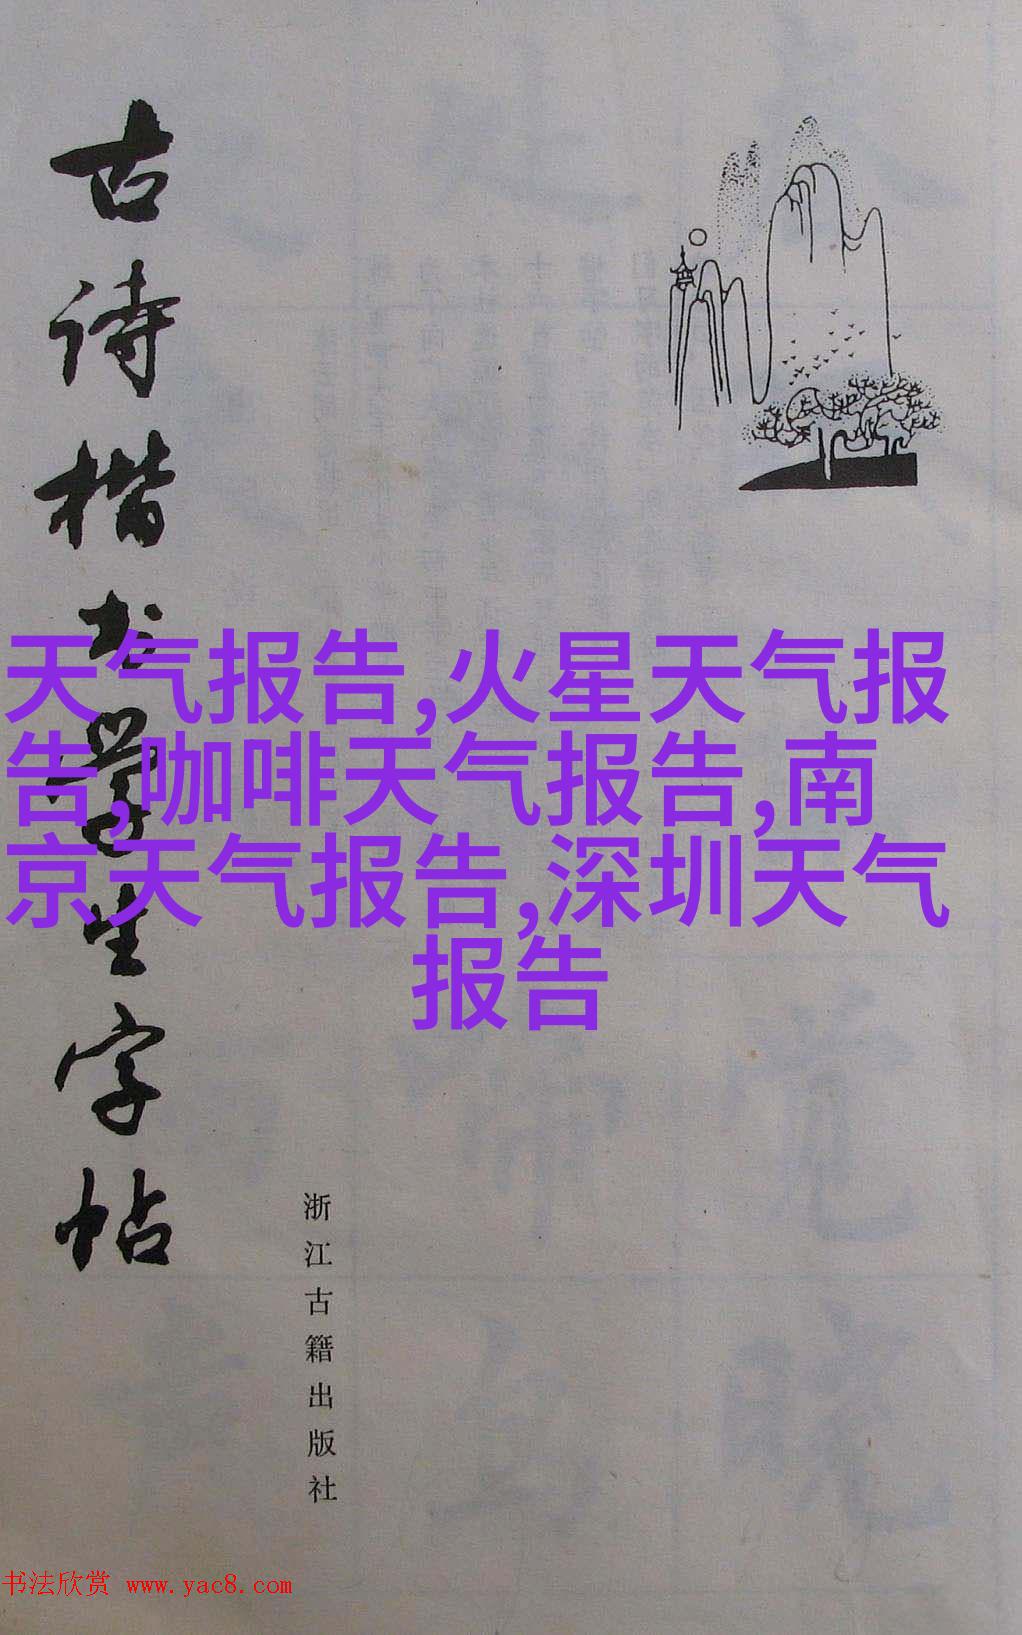 古诗楷书学生字帖
天气报告,火星天气报
告,咖啡天气报告,南
京天气报告,深圳天气
报告
浙江古籍出版社
书法欣赏 www.yac8.com